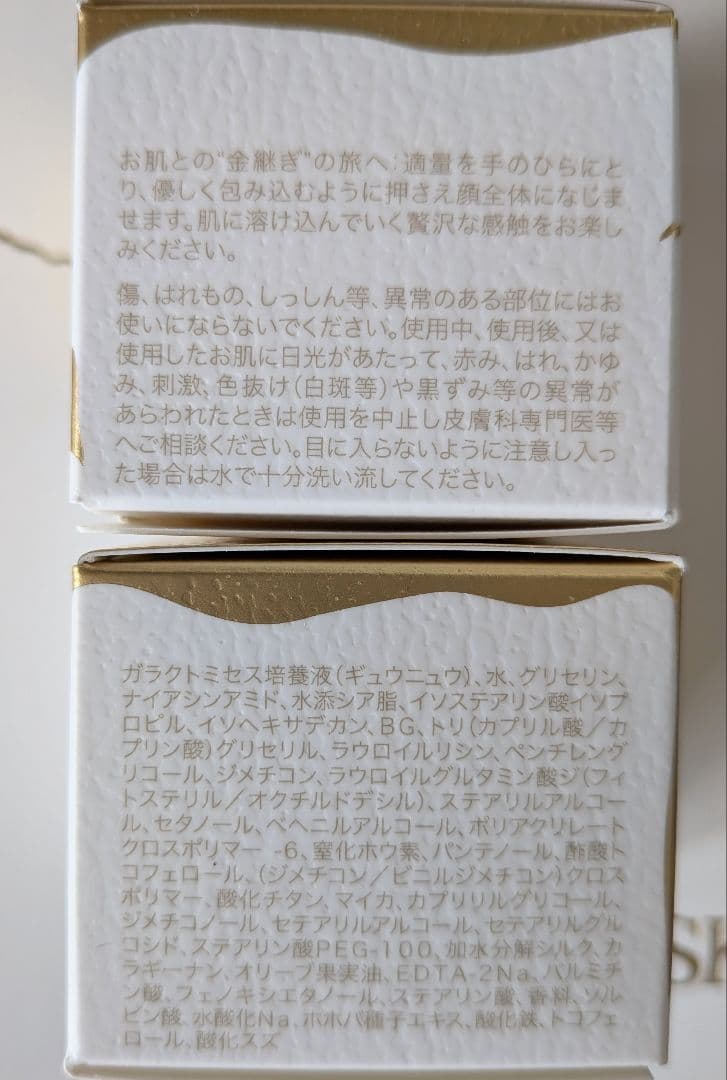 お肌との“金継ぎ”の旅へ：適量を手のひらにと
り、優しく包み込むように押さえ顔全体になじま
せます。肌に溶け込んでいく贅沢な感触をお楽し
みください。
傷、はれもの、しっしん等、異常のある部位にはお
使いにならないでください。使用中、使用後、又は
使用したお肌に日光があたって、赤み、はれ、かゆ
み、刺激、色抜け（白斑等）や黒ずみ等の異常が
あらわれたときは使用を中止し皮膚科専門医等
へご相談ください。目に入らないように注意し入っ
た場合は水で十分洗い流してください。
ガラクトミセス培養液（ギュウニュウ）、水、グリセリン、
ナイアシンアミド、水添シア脂、イソステアリン酸イソプ
ロピル、イソヘキサデカン、BG、トリ（カプリル酸／カ
プリン酸）グリセリル、ラウロイルリシン、ペンチレング
リコール、ジメチコン、ラウロイルグルタミン酸ジ（フィ
トステリル／オクチルドデシル）、ステアリルアルコー
ル、セタノール、ベヘニルアルコール、ポリアクリレート
クロスポリマー -6、窒化ホウ素、パンテノール、酢酸ト
コフェロール、（ジメチコン／ビニルジメチコン）クロス
ポリマー、酸化チタン、マイカ、カプリリルグリコール、
ジメチコノール、セテアリルアルコール、セテアリルグル
コシド、ステアリン酸PEG-100、加水分解シルク、カ
ラギーナン、オリーブ果実油、EDTA-2Na、パルミチ
ン酸、フェノキシエタノール、ステアリン酸、香料、ソル
ビン酸、水酸化Na、ホホバ種子エキス、酸化鉄、トコフェ
ロール、酸化スズ